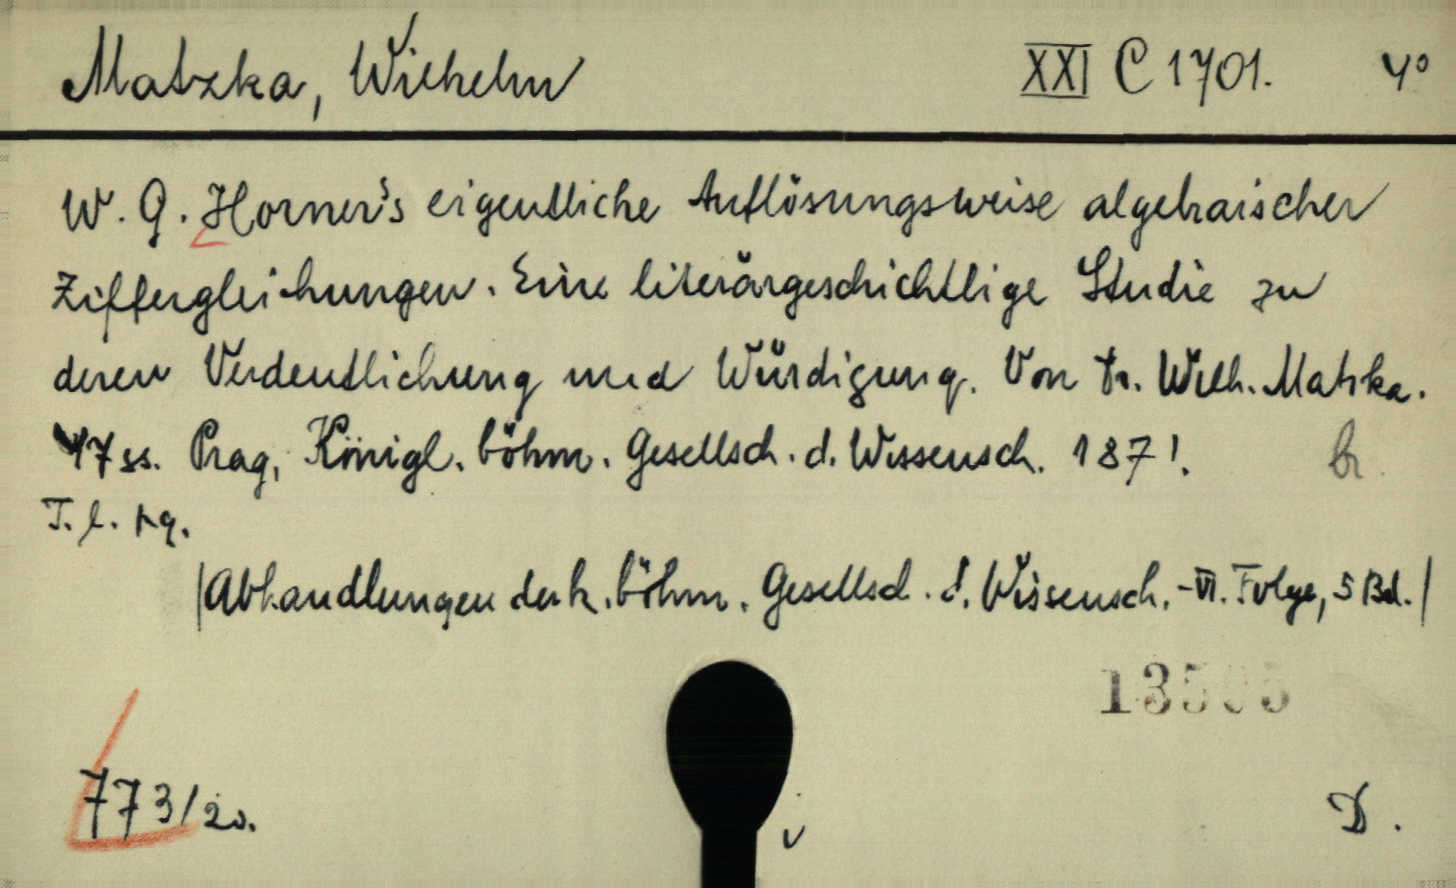 Matzka, Wilhelm XXI C 1701. 4°
W. G. Horner's eigentliche Auflösungsweise algebraischer
Ziffergleichungen. Eine literärgeschichtlige Studie zu
deren Verdeutlichung und Würdigung. Von Dr. Wilh. Matzka.
47 ss. Prag, Königl. böhm. Gesellsch. d. Wissensch. 1871. br.
T. l.
/Abhandlungen der k. böhm. Gesellsch. d. Wissensch. - VI. Folge, 5 Bd./
13595
773/20.
D.